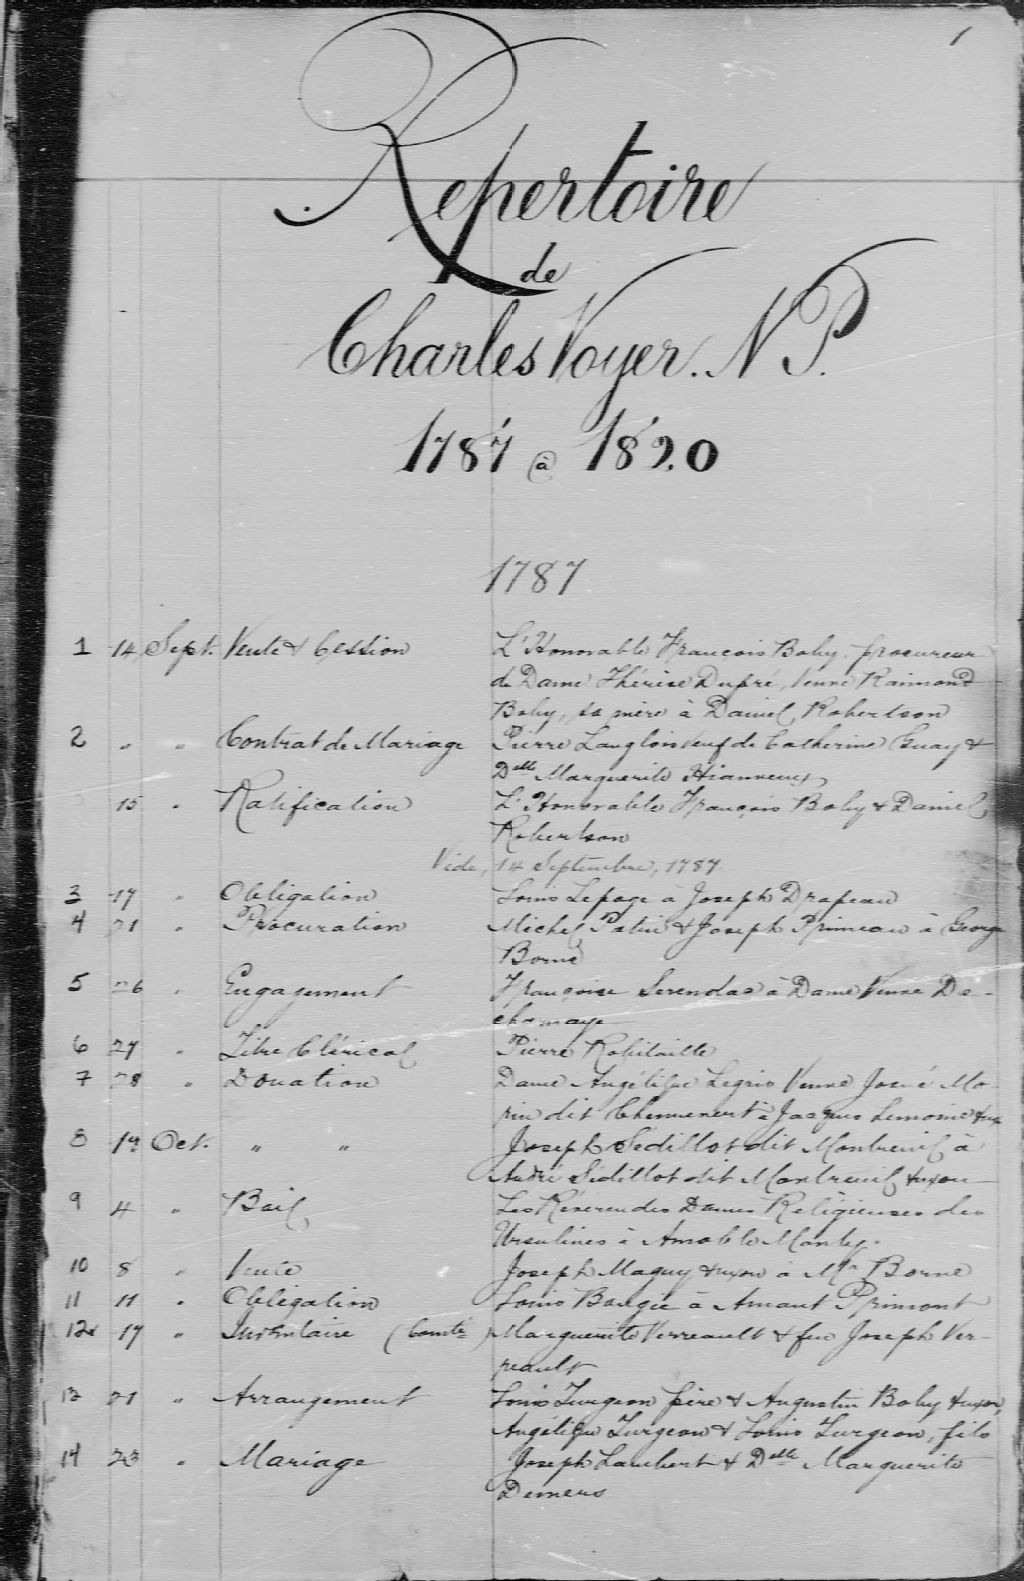 1
Repertoire
de
Charles Voyer. N. P.
1787 à 1820
1787
1 14 Sept. Vente & Cession L'Honorable François Baby, procureur
de Dame Thérèse Dupré, Veuve Raimond
Baby, sa mère à Daniel Robertson
2 " " Contrat de Mariage Pierre Langlois veuf de Catherine Guay &
Delle Marguerite
15 " Ratification L'Honorable François Baby & Daniel
Robertson
Vide, 14 Septembre, 1787
3 17 " Obligation Louis Lepage à Joseph Drapeau
4 21 " Procuration Michel Patin & Joseph Primeau à George
Borne
5 26 " Engagement Françoise à Dame Veuve De-
chamaye
6 27 " Titre Clérical Pierre Robitaille
7 28 " Donation Dame Angélique Legris Veuve Josué Mo-
rin dit Chenevert à Jacques Lemoine & ux
8 1er Oct. " " Joseph Sédillot dit Montreuil à
André Sédillot dit Montreuil & uxou
9 4 " Bail Les Révérendes Dames Religieuses des
Ursulines à Amable Manly.
10 8 " Vente Joseph Maguy & uxou à Mr Borne
11 11 " Obligation Louis Baugie à Amant Primont
12 17 " Inventaire (Comté) Marguerite Verreault & feu Joseph Ver-
reault
13 21 " Arrangement Louis Turgeon père & Augustin Baby & uxor,
Angélique Turgeon & Louis Turgeon, fils
14 23 " Mariage Joseph Lambert & Delle Marguerite
Demers